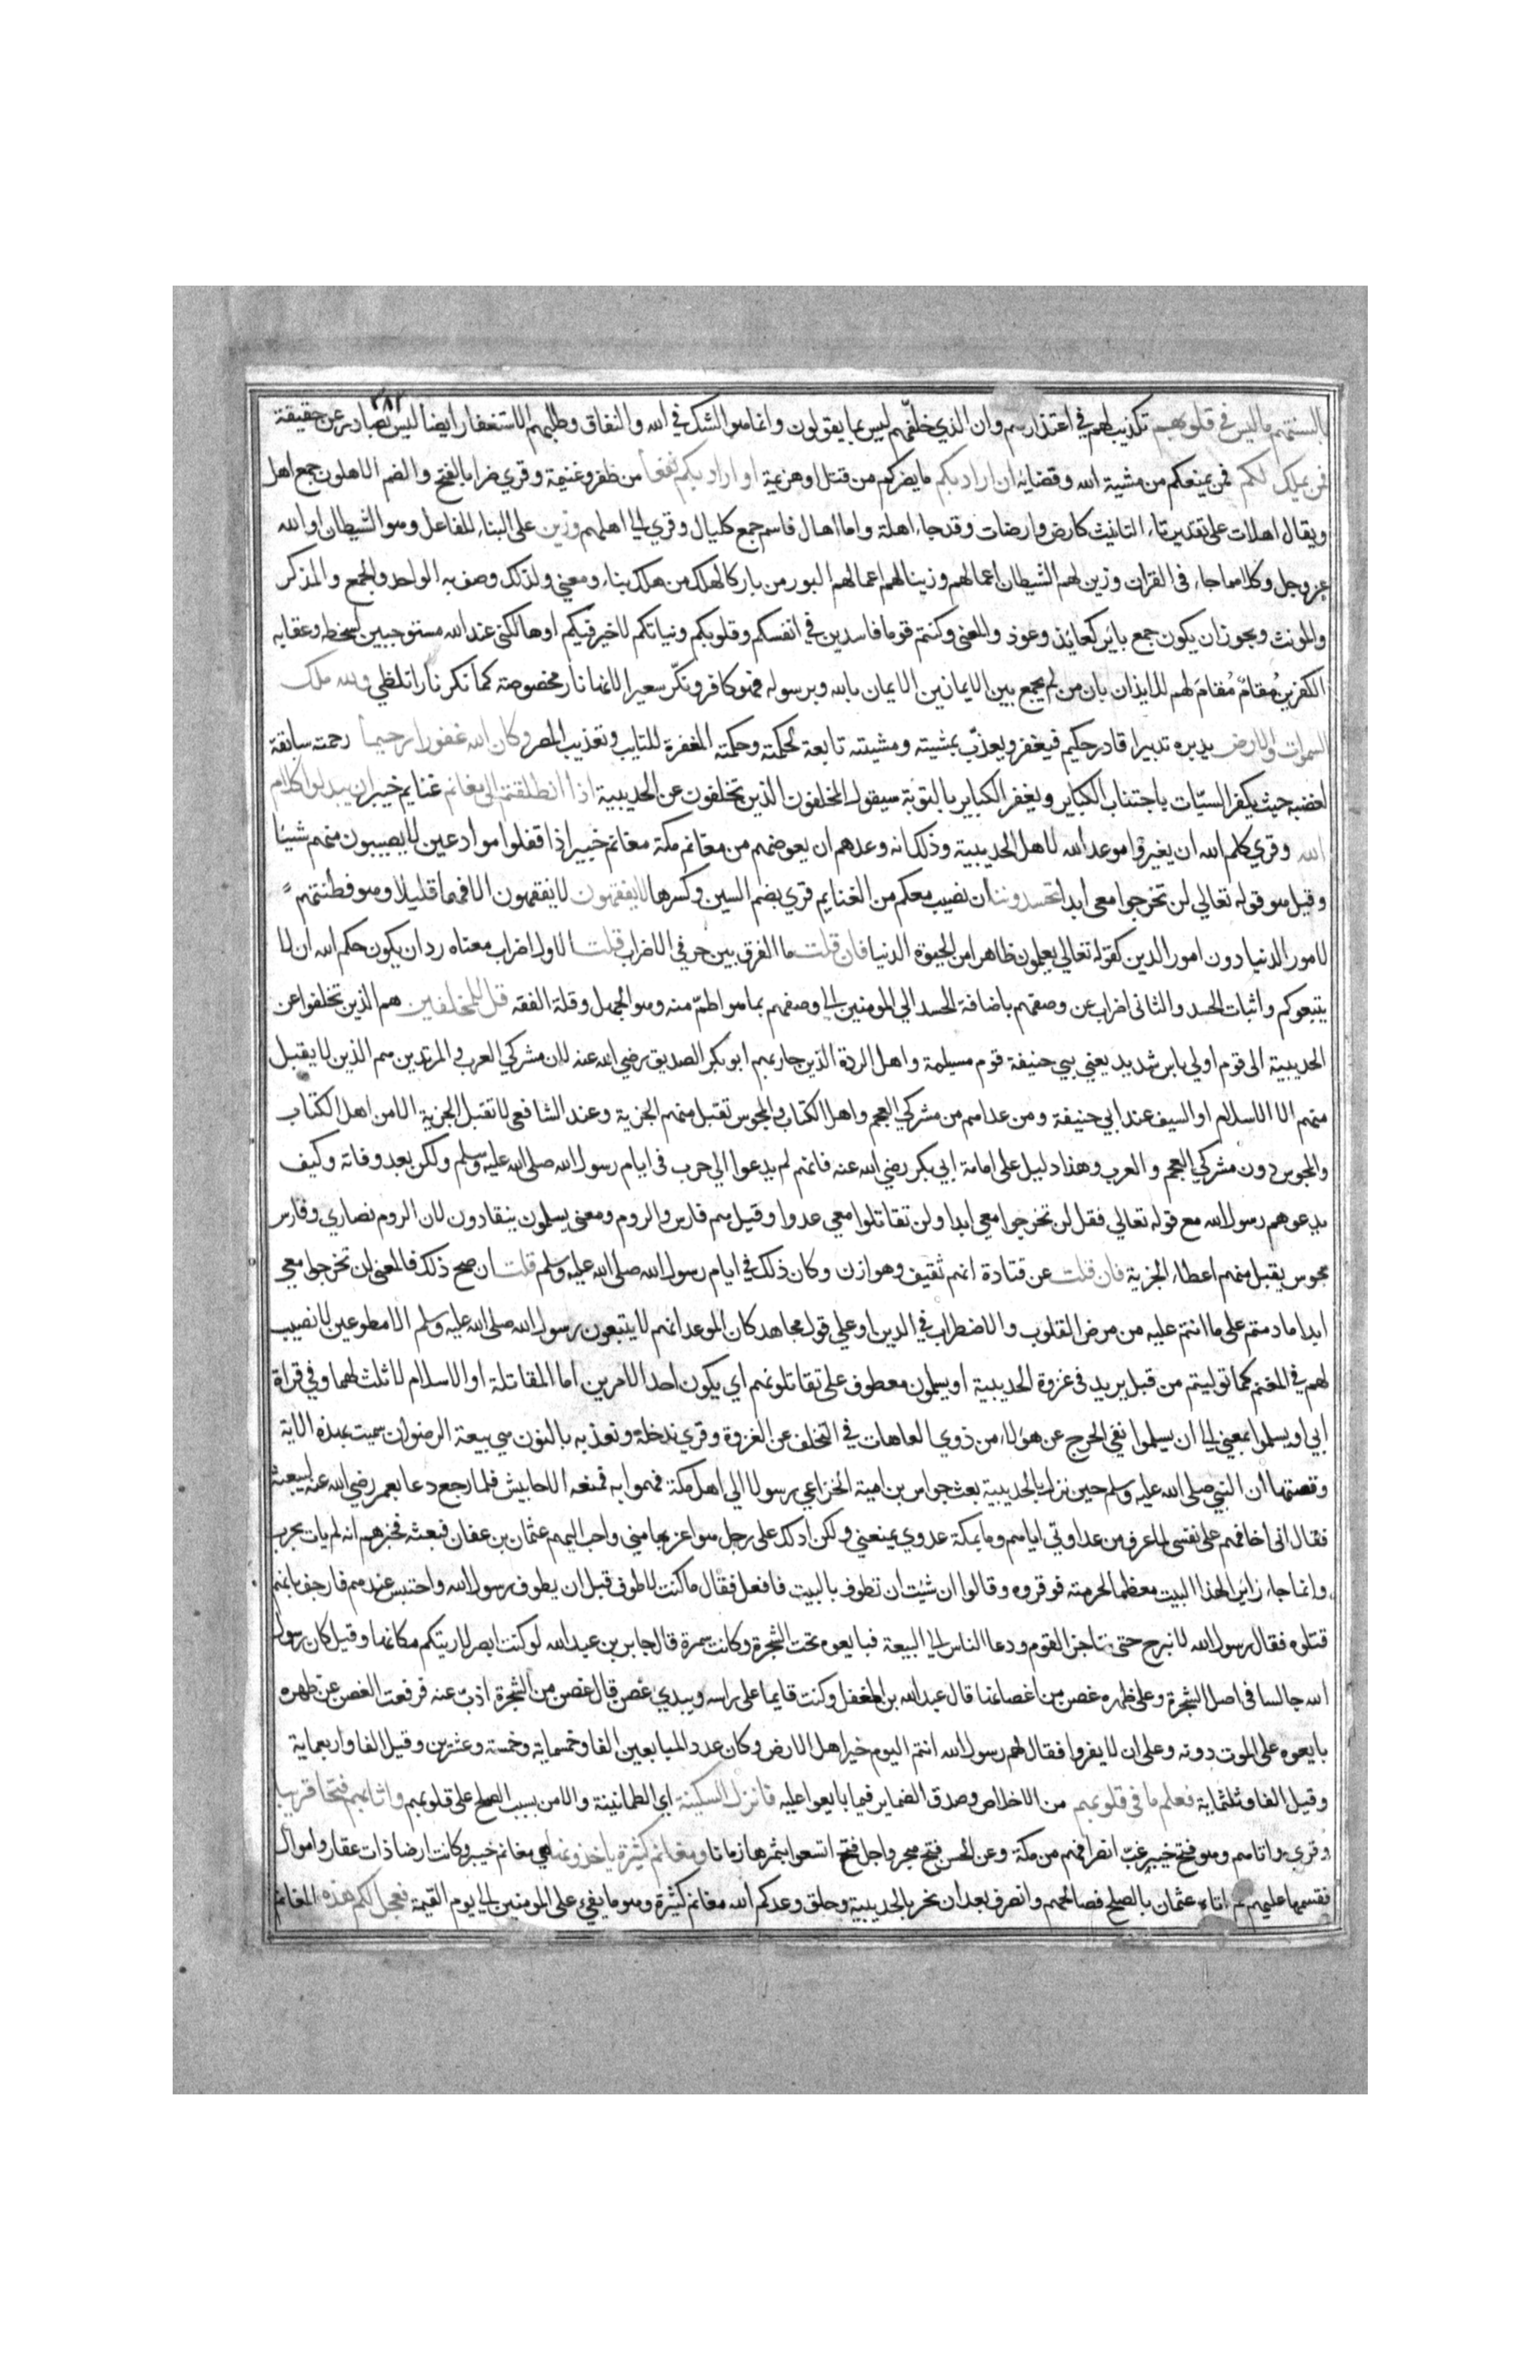 ٢٨٢
بالسنتهم ما ليس في قلوبهم تكذيب لهم في اعتذارهم وان الذي خلفهم ليس بما يقولون وانما هو الشك في الله والنفاق وطلبهم للاستغفار ايضا ليس بصادر عن حقيقة
فمن يملك لكم فمن يمنعكم من مشية الله وقضايه ان اراد بكم ما يضركم من قتل او هزيمة او اراد بكم نفعا من ظفر وغنيمة وقري ضرا بالفتح والضم الاهلون جمع اهل
ويقال اهلات على تقدير تاء التانيث كارض وارضات وقد جاء اهلة واما اهال فاسم جمع كليال وقري الي اهلهم وزين على البناء للفاعل وهو الشيطان او الله
عز وجل وكلاهما جاء في القران وزين لهم الشيطان اعمالهم وزينا لهم اعمالهم البور من بار كالهلك من هلك بناء ومعني ولذلك وصف به الواحد والجمع والمذكر
والمونث ويجوز ان يكون جمع باير كعائذ وعوذ والمعنى وكنتم قوما فاسدين في انفسكم وقلوبكم ونياتكم لا خير فيكم او هالكين عند الله مستوجبين لسخطه وعقابه
الكفرين مقام مقام لهم للايذان بان من لم يجمع بين الايمانين الايمان بالله وبرسوله فهو كافر ونكر سعيرا لانها نار مخصوصة كما نكر نارا تلظي ولله ملك
السموات والارض يدبره تدبيرا قادر حكيم فيغفر ويعذب بمشيته ومشيته تابعة لحكمته وحكمته المغفرة للتايب وتعذيب المصر وكان الله غفورا رحيما رحمته سابقة
لغضبه حيث يكفر السيات باجتناب الكباير ويغفر الكباير بالتوبة سيقول المخلفون الذين تخلفون عن الحديبية اذا انطلقتم الى مغانم غنايم خيبر ان يبدلوا كلام
الله وقري كلم الله ان يغيروا موعد الله لاهل الحديبية وذلك انه وعدهم ان يعوضهم من مغانم مكة مغانم خيبر اذا قفلوا موادعين لا يصيبون منهم شيئا
وقيل هو قوله تعالي لن تخرجوا معي ابدا تحسدوننا ان نصيب معكم من الغنايم قري بضم السين وكسرها لا يفقهون لا يفقهون الا فهما قليلا وهو فطنتهم
لامور الدنيا دون امور الدين كقوله تعالي يعلمون ظاهرا من الحيوة الدنيا فان قلت ما الفرق بين حرفي الاضراب قلت الاول اضراب معناه رد ان يكون حكم الله ان لا
يتبعوكم واثبات الحسد والثاني اضراب عن وصفهم باضافة الحسد الي المومنين الي وصفهم بما هو اطم منه وهو الجهل وقلة الفقه قل للمخلفين هم الذين تخلفوا عن
الحديبية الى قوم اولي باس شديد يعني بني حنيفة قوم مسيلمة واهل الردة الذين حاربهم ابو بكر الصديق رضي الله عنه لان مشركي العرب والمرتدين هم الذين لا يقبل
منهم الا الاسلام او السيف عند ابي حنيفة ومن عداهم من مشركي العجم واهل الكتاب والمجوس تقبل منهم الجزية وعند الشافعي لا تقبل الجزية الا من اهل الكتاب
والمجوس دون مشركي العجم والعرب وهذا دليل على امامة ابي بكر رضي الله عنه فانهم لم يدعوا الي حرب في ايام رسول الله صلى الله عليه وسلم ولكن بعد وفاته وكيف
يدعوهم رسول الله مع قوله تعالي فقل لن تخرجوا معي ابدا ولن تقاتلوا معي عدوا وقيل هم فارس والروم ومعنى يسلمون ينقادون لان الروم نصاري وفارس
مجوس يقبل منهم اعطاء الجزية فان قلت عن قتادة انهم ثقيف وهوازن وكان ذلك في ايام رسول الله صلى الله عليه وسلم قلت ان صح ذلك فالمعنى لن تخرجوا معي
ابدا ما دمتم على ما انتم عليه من مرض القلوب والاضطراب في الدين او علي قول مجاهد كان الموعد انهم لا يتبعون رسول الله صلى الله عليه وسلم الا مطوعين لا نصيب
لهم في المغنم كما توليتم من قبل يريد في غزوة الحديبية او يسلمون معطوف على تقاتلونهم اي يكون احد الامرين اما المقاتلة او الاسلام لا ثالث لهما وفي قراة
ابي او يسلموا بمعنى الي ان يسلموا نفي الحرج عن هولاء من ذوي العاهات في التخلف عن الغزوة وقري ندخله ونعذبه بالنون هي بيعة الرضوان سميت بهذه الاية
وقصتها ان النبي صلى الله عليه وسلم حين نزل بالحديبية بعث جواس بن امية الخزاعي رسولا الى اهل مكة فهموا به فمنعه الاحابيش فلما رجع دعا بعمر رضي الله عنه ليبعثه
فقال اني اخافهم على نفسي لما عرف من عداوتي اياهم وما بمكة عدوي يمنعني ولكن ادلك على رجل هو اعز بها مني واحب اليهم عثمان بن عفان فبعثه فخبرهم انه لم يات بحرب
وانما جاء زائرا لهذا البيت معظما لحرمته فوقروه وقالوا ان شئت ان تطوف بالبيت فافعل فقال ما كنت لاطوف قبل ان يطوف رسول الله واحتبس عندهم فارجف بانهم
قتلوه فقال رسول الله لا نبرح حتى نناجز القوم ودعا الناس الي البيعة فبايعوه تحت الشجرة وكانت سمرة قال جابر بن عبد الله لو كنت ابصر لاريتكم مكانها وقيل كان رسول
الله جالسا في اصل الشجرة وعلى ظهره غصن من اغصانها قال عبد الله بن المغفل وكنت قايما على راسه وبيدي غصن قال غصن من الشجرة اذب عنه فرفعت الغصن عن ظهره
بايعوه على الموت دونه وعلى ان لا يفروا فقال لهم رسول الله انتم اليوم خير اهل الارض وكان عدد المبايعين الفا وخمسماية وخمسة وعشرين وقيل الفا واربعماية
وقيل الفا وثلثماية فعلم ما في قلوبهم من الاخلاص وصدق الضماير فيما بايعوا عليه فانزل السكينة اي الطمانينة والامن بسبب الصلح على قلوبهم واثابهم فتحا قريبا
وقري واتاهم وهو فتح خيبر غب انصرافهم من مكة وعن الحسن فتح هجر واجل فتح اتسعوا بثمرها زمانا ومغانم كثيرة ياخذونها هي مغانم خيبر وكانت ارضا ذات عقار واموال
فقسمها عليهم ثم اتاه عثمان بالصلح فصالحهم وانصرف بعد ان نحر بالحديبية وحلق وعدكم الله مغانم كثيرة وهو ما يفيء على المومنين الي يوم القيمة فعجل لكم هذه المغانم